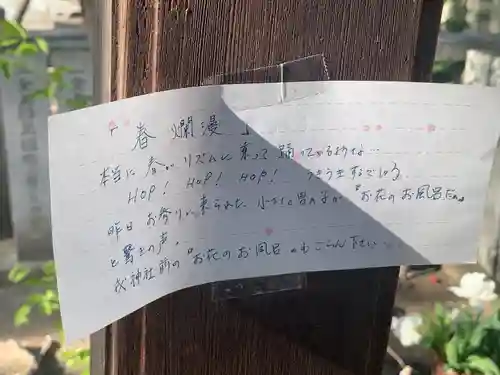 「春爛漫」
本当に春のリズムに乗って踊ってるような…
HOP! HOP! HOP! うきうきするでしょう
昨日お参りに来られた小さな男の子が『お花のお風呂だね』
と驚きの声。
神社前の『お花のお風呂』もごらん下さい